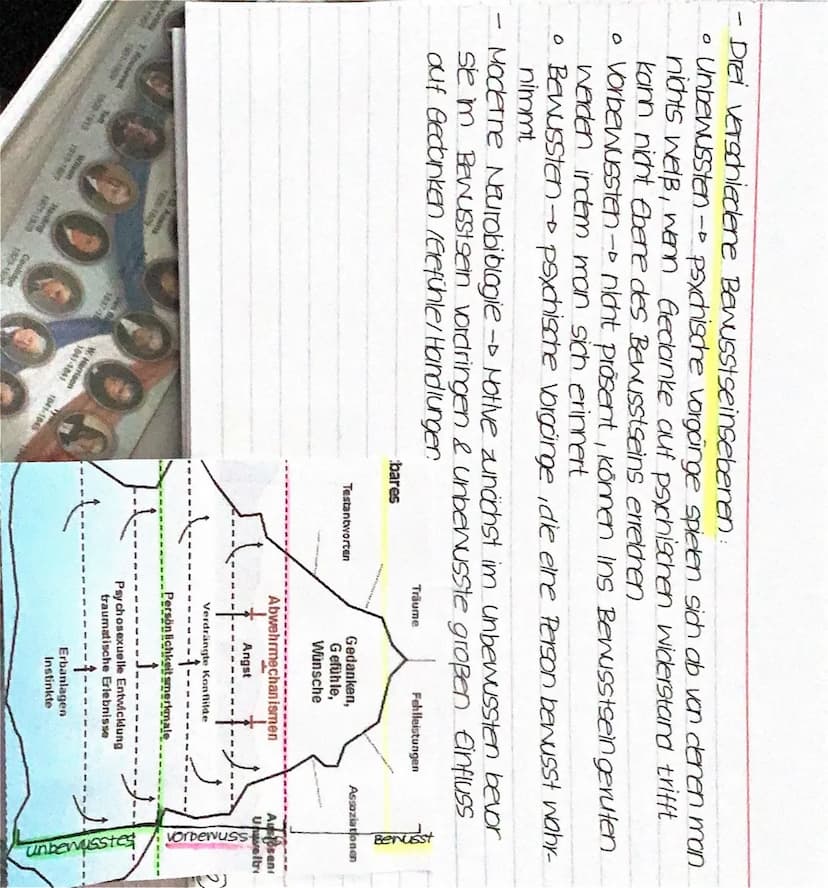 - Drei verschiedene Bewusstseinsebenen:
o Unbewussten → psychische Vorgänge spielen sich ab von denen man
nichts weiß, wenn Gedanke auf psychischen Widerstand trifft
kann nicht Ebene des Bewusstseins erreichen
o Vorbewussten → nicht präsent, können ins Bewusstsein gerufen
werden indem man sich erinnert
o Bewussten → psychische Vorgänge, die eine Person bewusst wahr-
nimmt
- Moderne Neurobiologie → Motive zunächst im Unbewussten bevor
sie im Bewusstsein vordringen & unbewusste großen Einfluss
auf Gedanken/Gefühle/Handlungen
bares
Träume
Fehlleistungen
Testantworten
Assoziationen
Gedanken,
Gefühle,
Wünsche
Bewusst
Abwehrmechanismen
Angst
Verdrängte Konflikte
vorbewuss
Persönlichkeitsmerkmale
Psychosexuelle Entwicklung
traumatische Erlebnisse
Erbanlagen
Instinkte
unbewusstes
T. Roosevelt
Taft
Wilson
Harding
Coolidge
W. Harrison
1841-1841